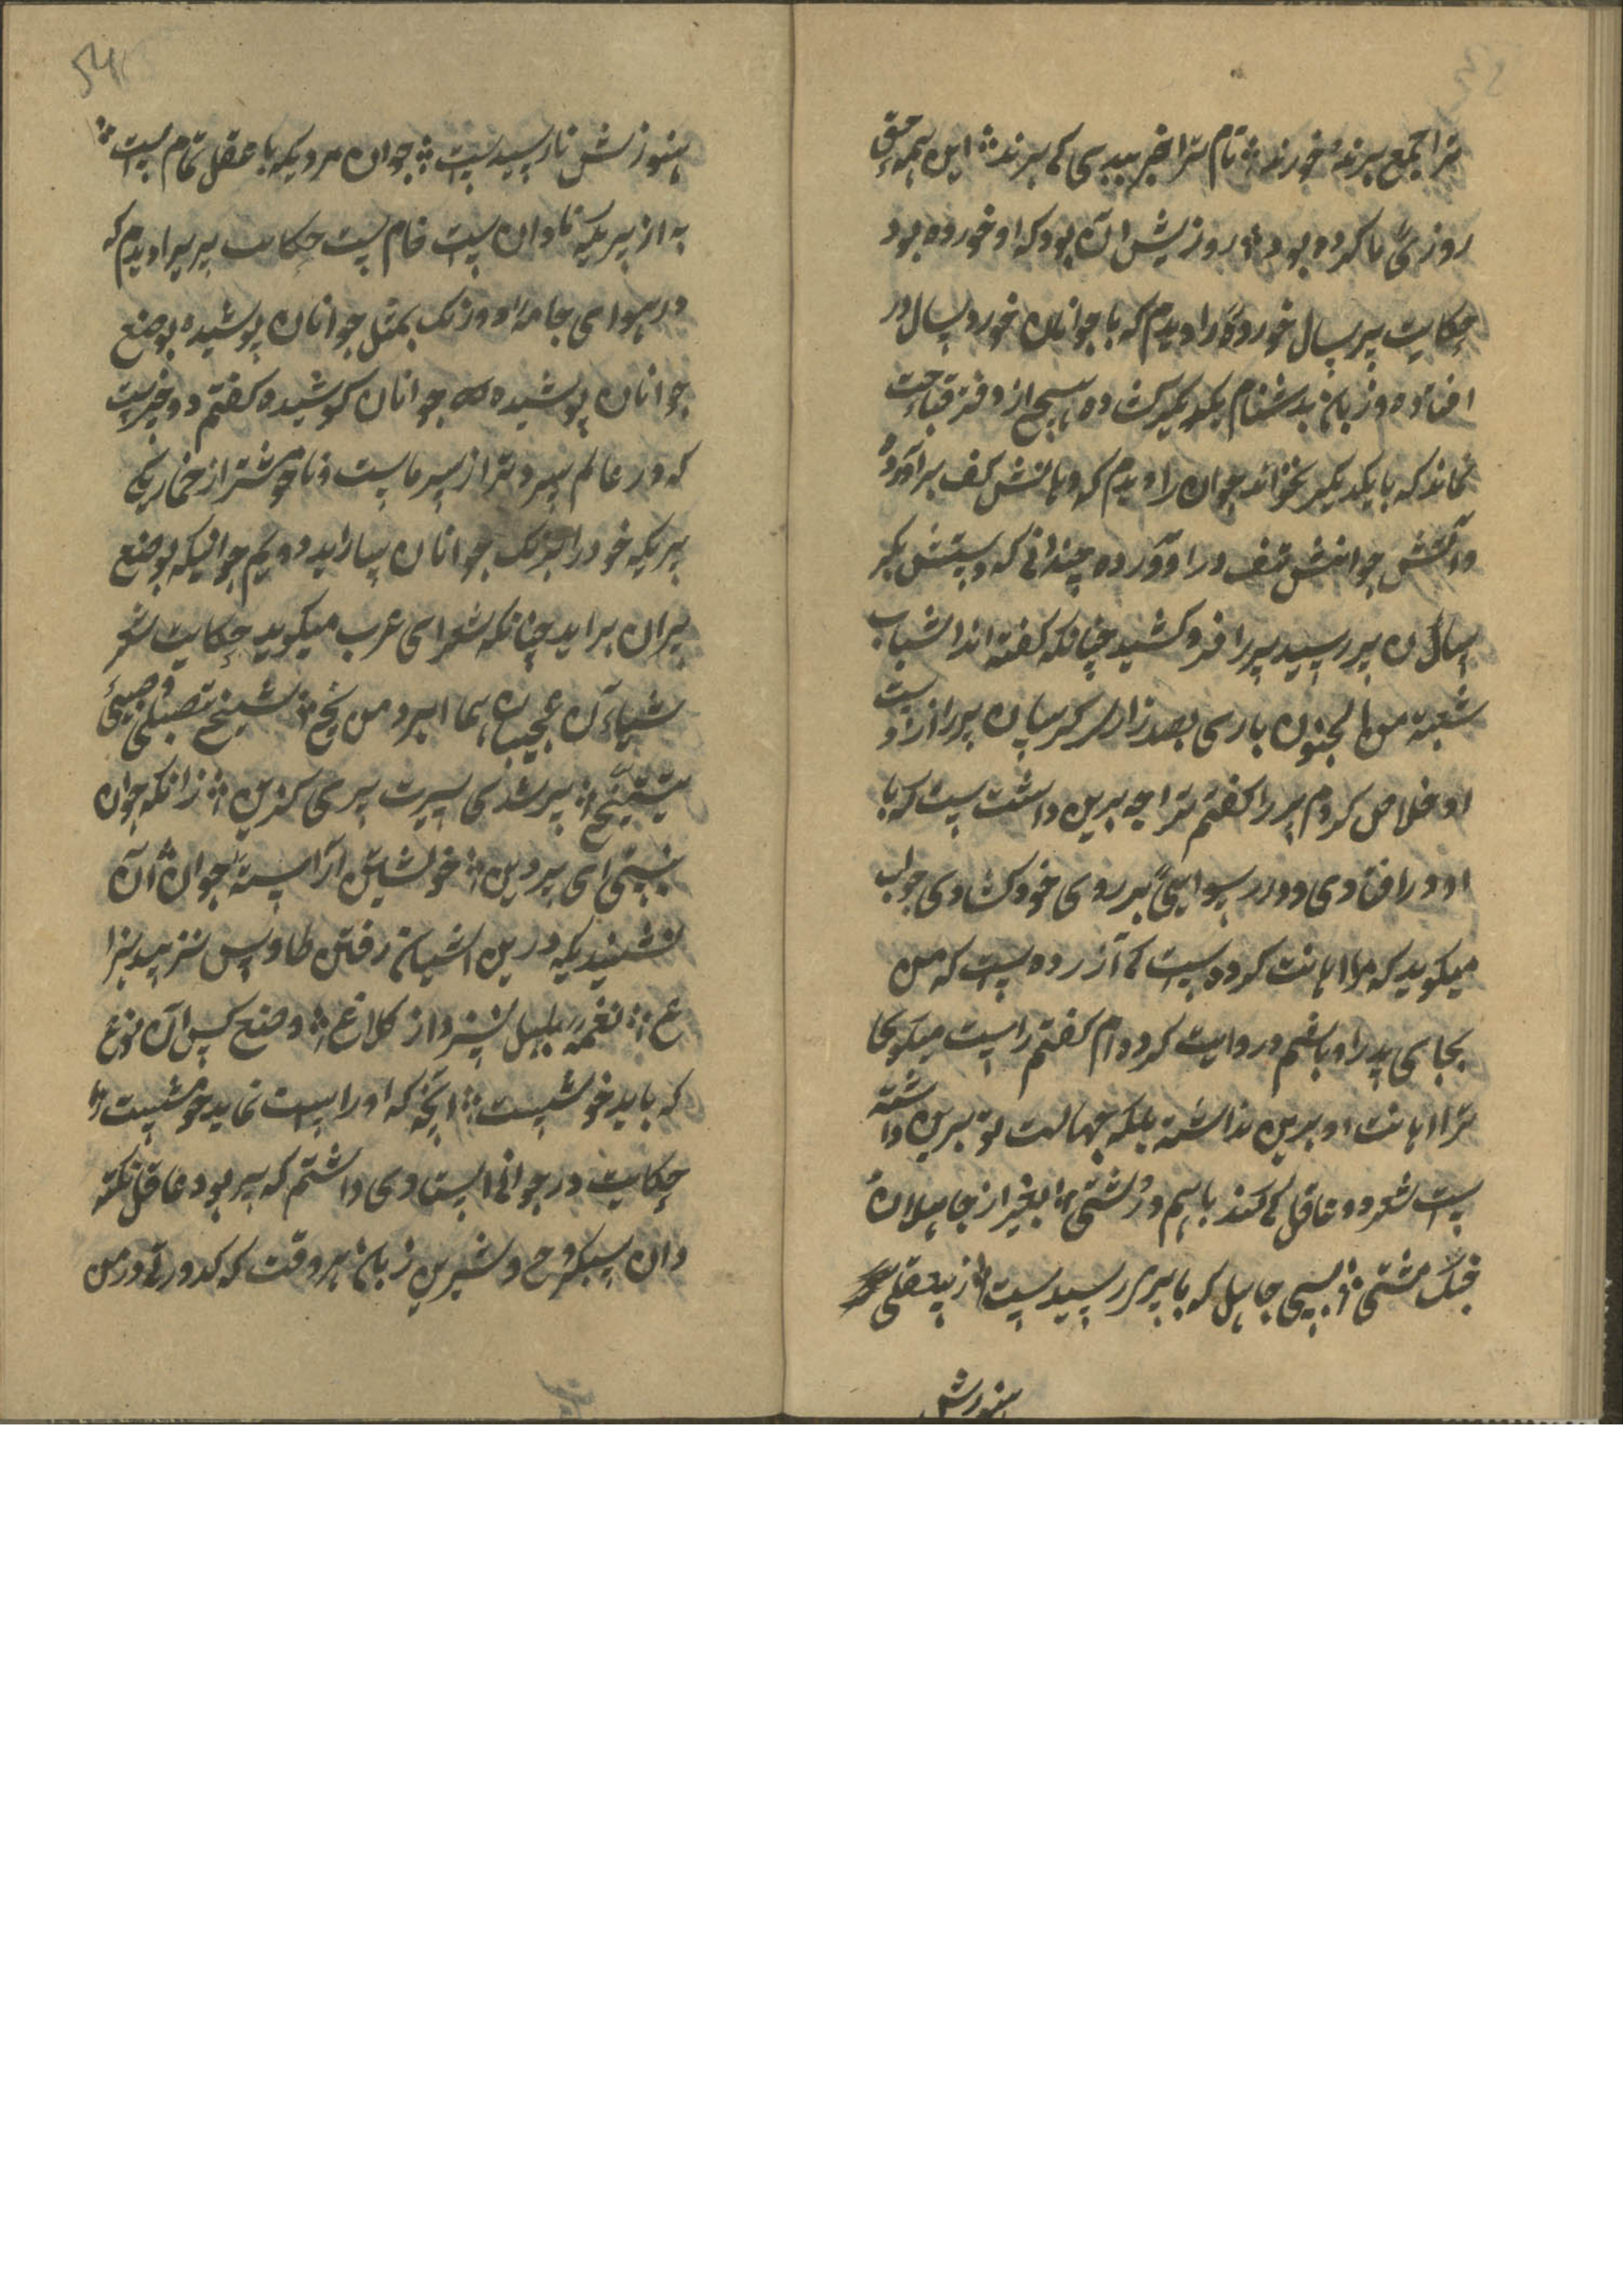 ترا جمع پیرند خورند ؛ نام ترا خیر ببدی کی برند ؛ این همه حق
روزی ما کرده بود ؛ روزیش آن بود که او خورده بود
حکایت پیر سال خورده را دیدم که با جوانان خورد سال در
افتاده و زبان بدشنام یکدیگر کشاده هیچ از دفتر قباحت
نماند که بایکدیگر نخواند جوان را دیدم که دهانش کف برآورده
و آتش جوانیش تف در آورده چندانی که دستش بکر
سال آن پیر رسید پیر را فرو کشید چنانکه گفته اند الشباب
شعبة من الجنون باری بصد زاری کریبان پیر را از دست
او خلاص کردم پیر را کفتم ترا چه برین داشت ست که با
او در افتادی و در رسوایی بر روی خود کشادی جواب
میکوید که مرا اهانت کرده ست کی آزرده ست که من
بجای پدر او باشم در روایت کرده ام کفتم راست میکوی اما
ترا اهانت او برین نداشته بلکه جهالت تو برین داشته
ست شعر دو عاقل کی کند باهم درشتی ؛ بغیر از جاهلان
جنک مشتی ؛ بسی جاهل که با پیری رسیدست ؛ از بیعقلی
هنوزش
54
هنوزش نارسیدست ؛ جوان مردیکه با عقل تمام ست ؛
به از پیریکه نادان ست خام ست حکایت پیریرا دیدم که
در هوای جامه او و رنک بمثل جوانان پوشیده بوضع
جوانان پوشیده جوانان کوشیده کفتم دو چیزست
که در عالم سرد تر از سرماست و ناخوشتر از خمار یکی
پیریکه خود را برنک جوانان بیاراید دویم جوانیکه بوضع
پیران برآید چنانکه شعرای عرب میکوید حکایت شعر
شیاءن عجیبان هما ابرد من یخ ؛ شیخ یتصبی و صبی
یتشیخ ؛ پیر شدی سیرت پیری کزین ؛ زانکه جوان
نیستی ای پیر دین ؛ خویشتن آراسته جوان ؛ آن
نشنیدیکه درین آشیان رفتن طاوس نزیبد بزا
غ ؛ نغمه بلبل نسزد از کلاغ ؛ وضع کس آن نوع
که باید خوشست ؛ انچه که او راست نماید خوشست ؛
حکایت در جوانی استادی داشتم که پیر بود عاقل نکته
دان سبکروح و شیرین زبان هر وقت که کدورتی در من